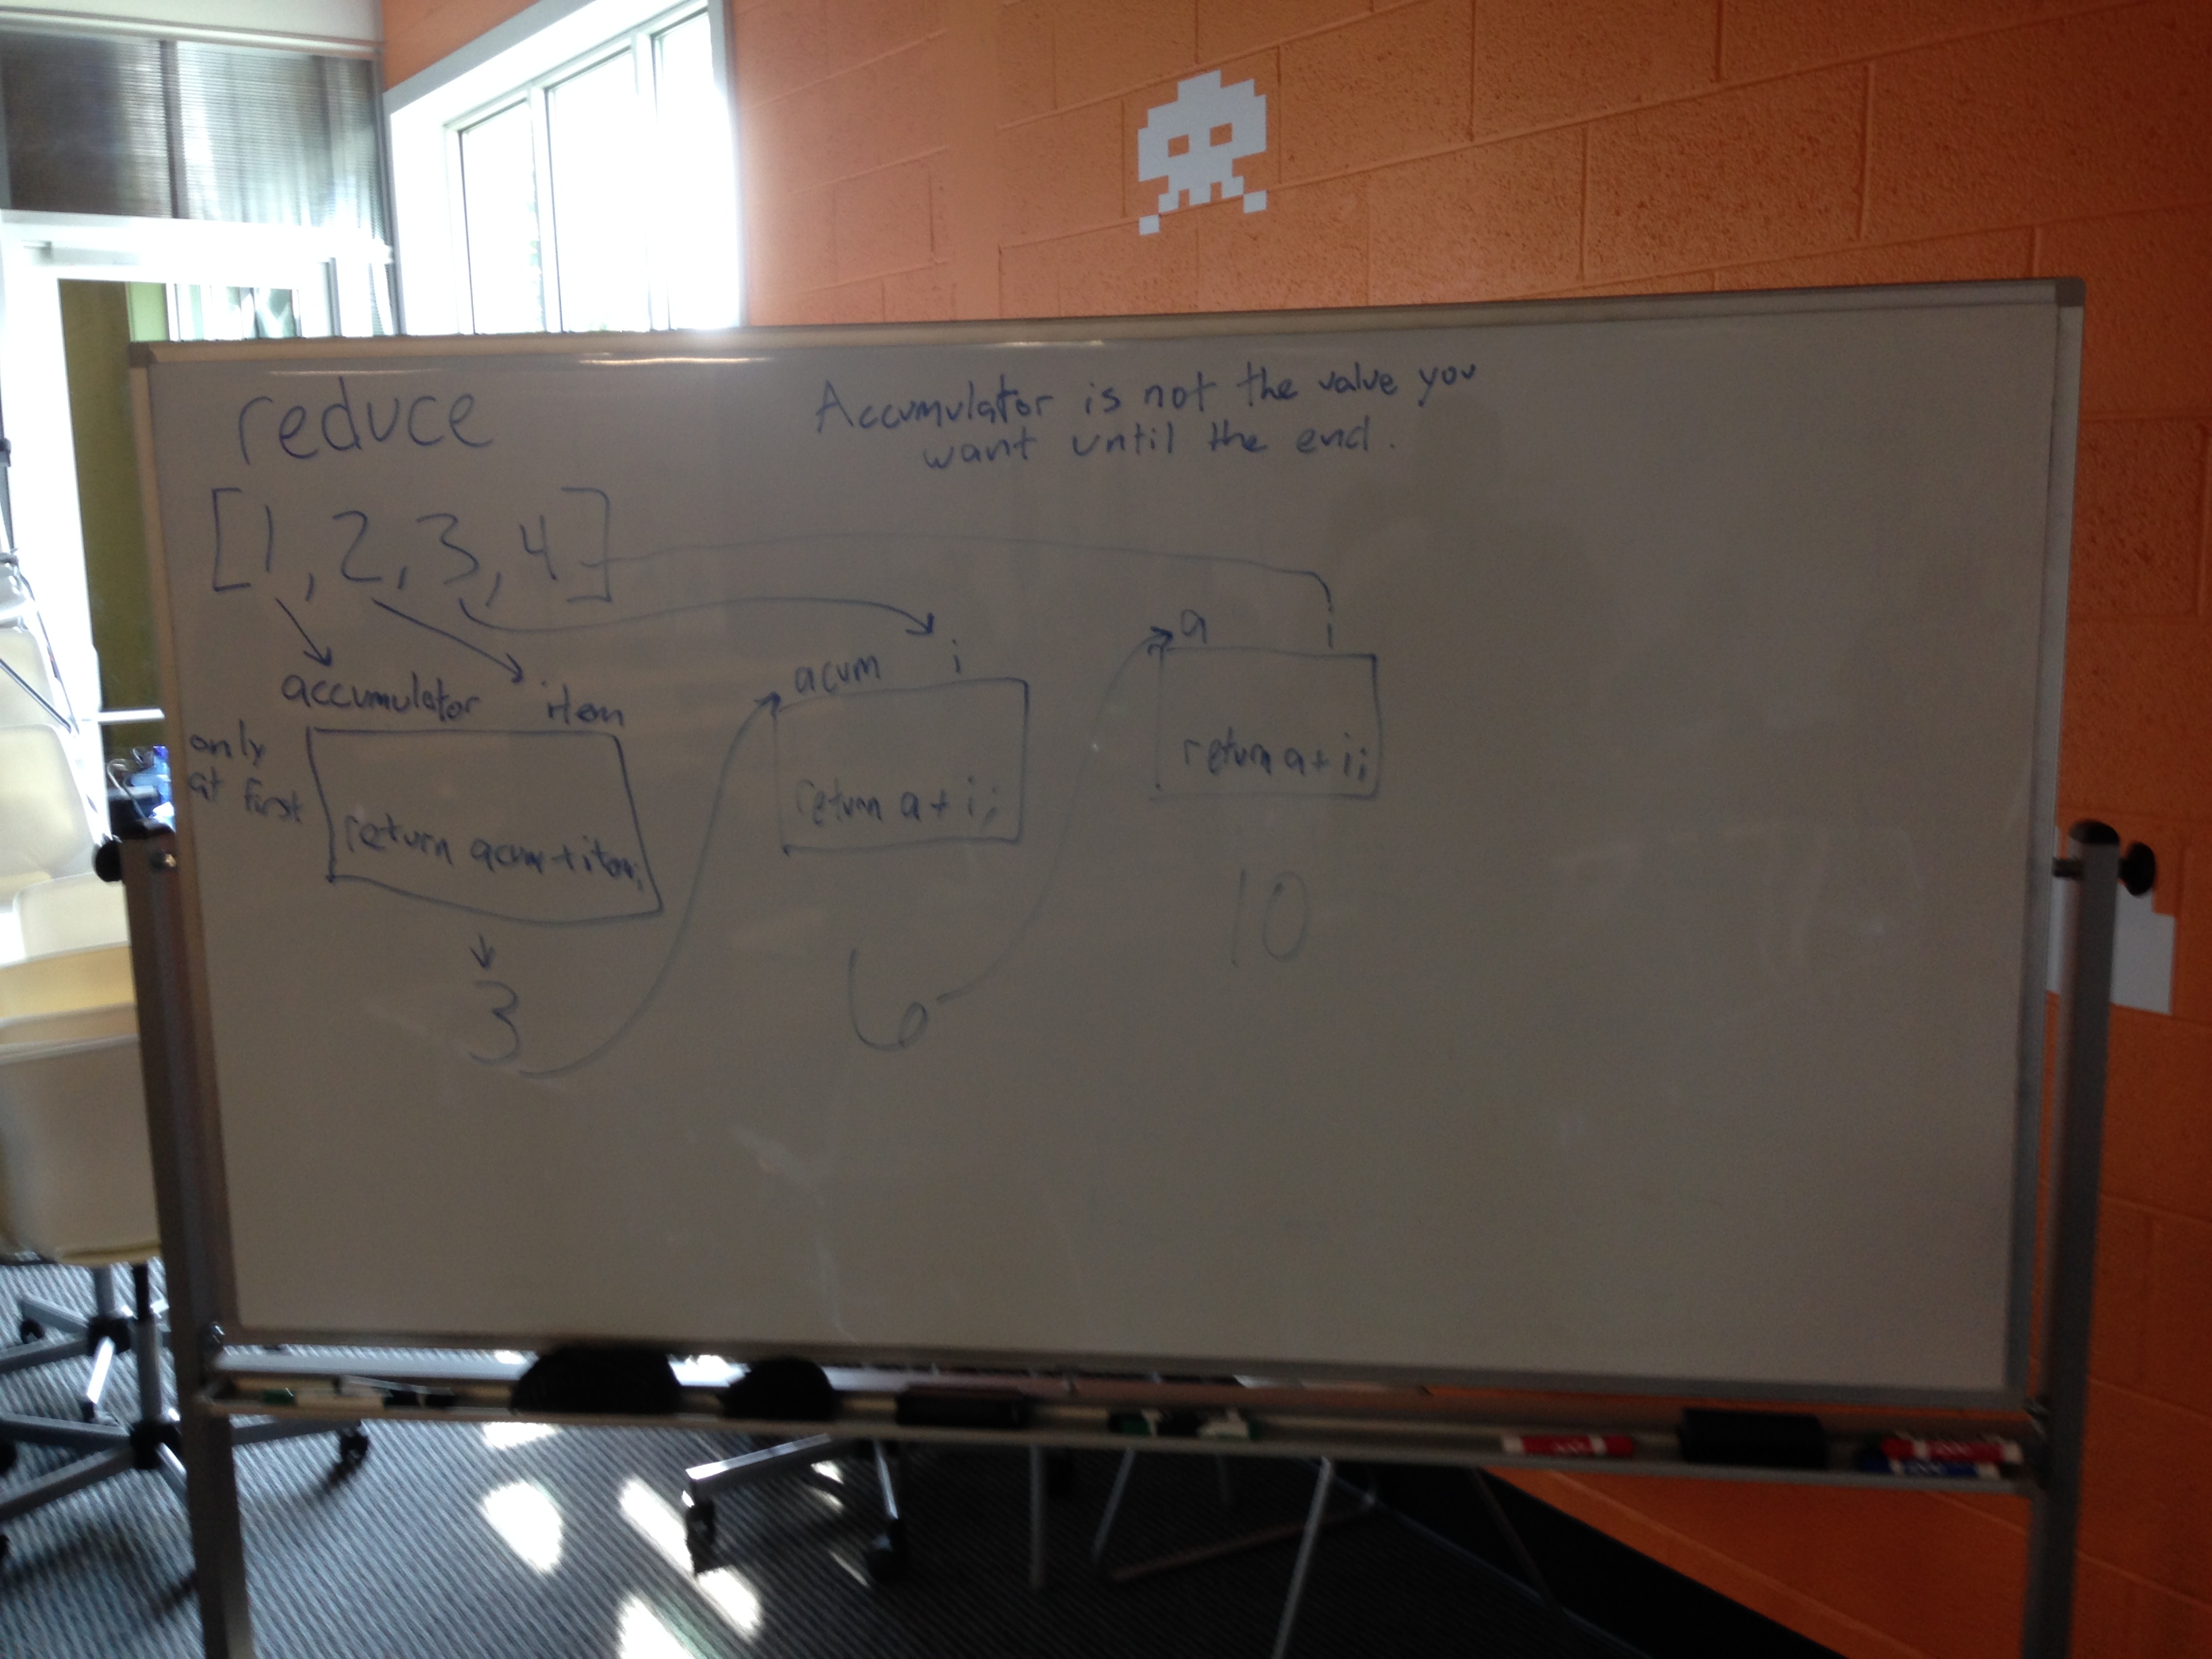 reduce
Accumulator is not the value you
want until the end.
[1, 2, 3, 4]
accumulator item
only
at first
return acum + item;
3
acum i
return a + i;
6
a i
return a + i;
10